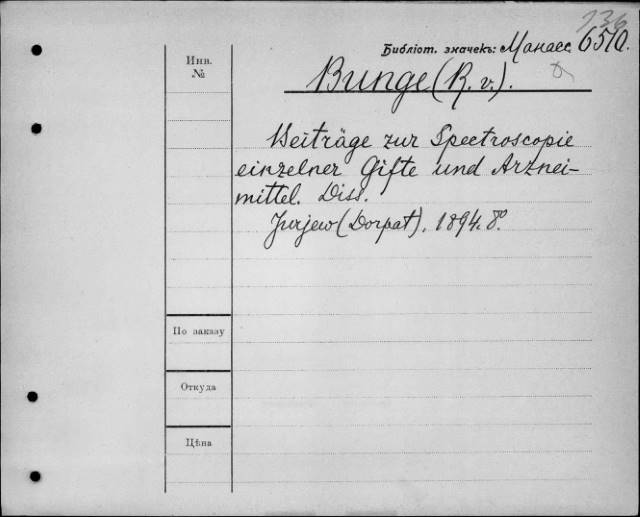 136
Библіот. значекъ: Манасс. 6510.
Инв.
№
Bunge (R. v.).
Beiträge zur Spectroscopie
einzelner Gifte und Arznei-
mittel. Diss.
Jurjew (Dorpat), 1894. 8º.
По заказу
Откуда
Цѣна